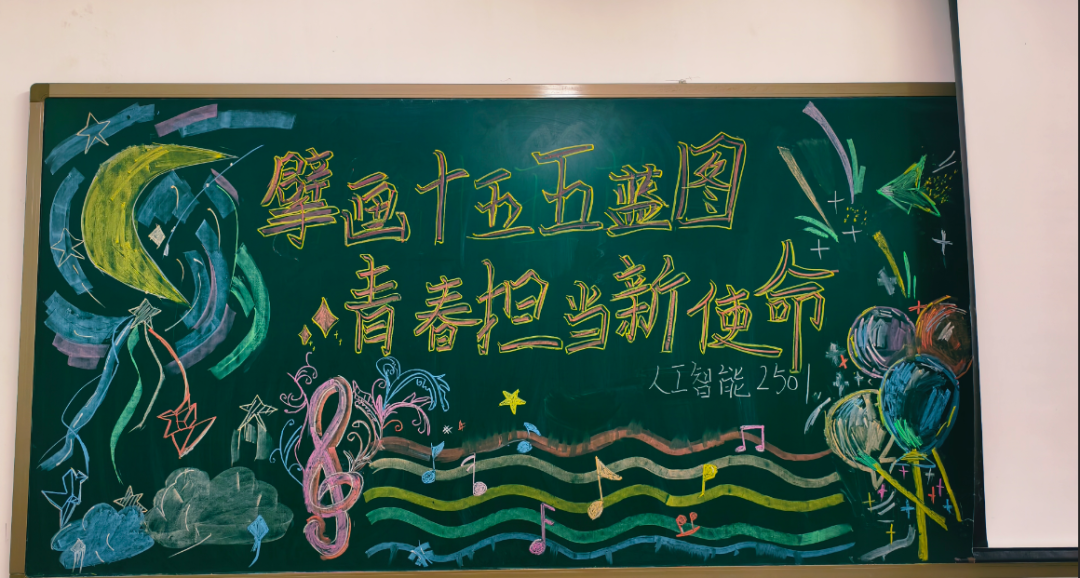 擘画十五五蓝图
青春担当新使命
人工智能2501